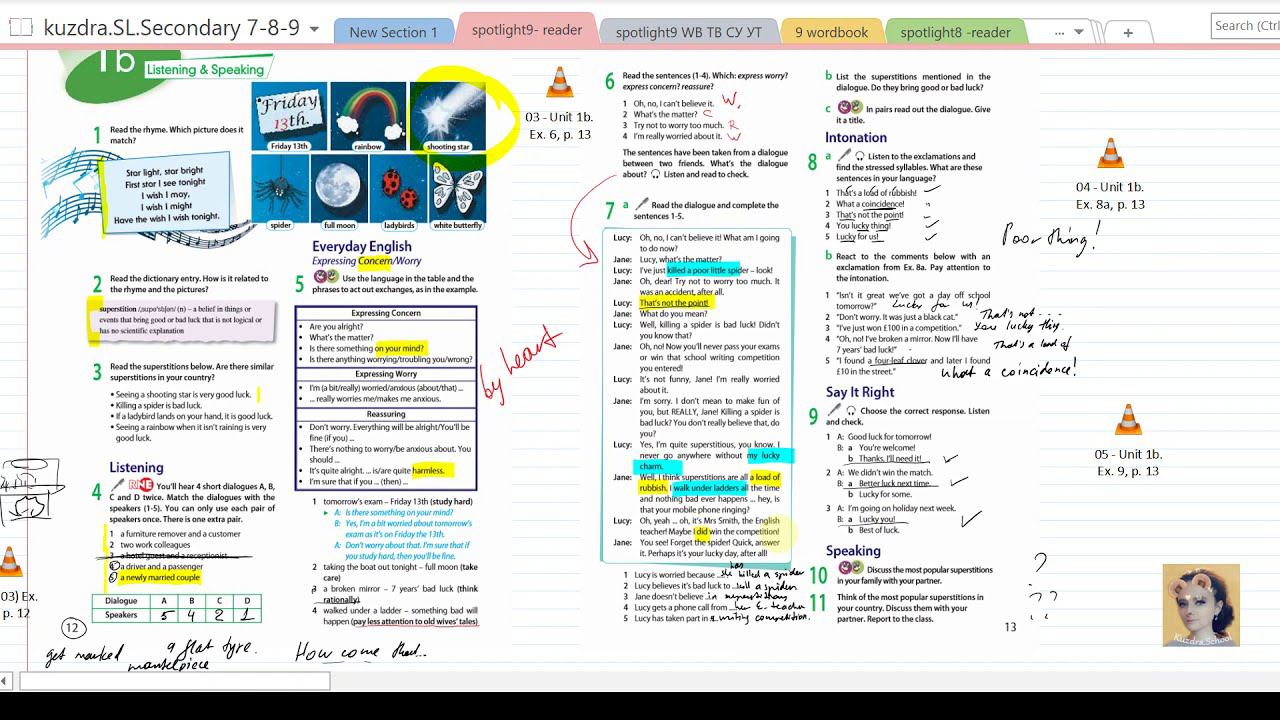 kuzdra.SL.Secondary 7-8-9
New Section 1
spotlight9- reader
spotlight9 WB ТВ СУ УТ
9 wordbook
spotlight8 -reader
...
+
Search (Ctrl
1b
Listening & Speaking
1 Read the rhyme. Which picture does it
match?
Star light, star bright
First star I see tonight
I wish I may,
I wish I might
Have the wish I wish tonight.
Friday
13th.
Friday 13th
rainbow
shooting star
spider
full moon
ladybirds
white butterfly
2 Read the dictionary entry. How is it related
to the rhyme and the pictures?
superstition (n) – a belief in things or
events that bring good or bad luck that is not logical or
has no scientific explanation
3 Read the superstitions below. Are there similar
superstitions in your country?
• Seeing a shooting star is very good luck.
• Killing a spider is bad luck.
• If a ladybird lands on your hand, it is good luck.
• Seeing a rainbow when it isn't raining is very
good luck.
Listening
4 RNE You'll hear 4 short dialogues A, B,
C and D twice. Match the dialogues with the
speakers (1-5). You can only use each pair of
speakers once. There is one extra pair.
1 a furniture remover and a customer
2 two work colleagues
3 a hotel guest and a receptionist
4 a driver and a passenger
5 a newly married couple
Dialogue A B C D
Speakers 5 4 2 1
12
get married
a flat tyre.
mantelpiece
03) Ex.
p. 12
Everyday English
Expressing Concern/Worry
5 Use the language in the table and the
phrases to act out exchanges, as in the example.
Expressing Concern
• Are you alright?
• What's the matter?
• Is there something on your mind?
• Is there anything worrying/troubling you/wrong?
Expressing Worry
• I'm (a bit/really) worried/anxious (about/that) ...
• ... really worries me/makes me anxious.
Reassuring
• Don't worry. Everything will be alright/You'll be
fine (if you) ...
• There's nothing to worry/be anxious about. You
should ...
• It's quite alright. ... is/are quite harmless.
• I'm sure that if you ... (then) ...
by heart
1 tomorrow's exam – Friday 13th (study hard)
▸ A: Is there something on your mind?
B: Yes, I'm a bit worried about tomorrow's
exam as it's on Friday the 13th.
A: Don't worry about that. I'm sure that if
you study hard, then you'll be fine.
2 taking the boat out tonight – full moon (take
care)
3 a broken mirror – 7 years' bad luck (think
rationally)
4 walked under a ladder – something bad will
happen (pay less attention to old wives' tales)
How come that...
03 - Unit 1b.
Ex. 6, p. 13
6 Read the sentences (1-4). Which: express worry?
express concern? reassure?
1 Oh, no, I can't believe it. W,
2 What's the matter? C
3 Try not to worry too much. R
4 I'm really worried about it. W
The sentences have been taken from a dialogue
between two friends. What's the dialogue
about? Listen and read to check.
7 a Read the dialogue and complete the
sentences 1-5.
Lucy: Oh, no, I can't believe it! What am I going
to do now?
Jane: Lucy, what's the matter?
Lucy: I've just killed a poor little spider – look!
Jane: Oh, dear! Try not to worry too much. It
was an accident, after all.
Lucy: That's not the point!
Jane: What do you mean?
Lucy: Well, killing a spider is bad luck! Didn't
you know that?
Jane: Oh, no! Now you'll never pass your exams
or win that school writing competition
you entered!
Lucy: It's not funny, Jane! I'm really worried
about it.
Jane: I'm sorry. I don't mean to make fun of
you, but REALLY, Jane! Killing a spider is
bad luck? You don't really believe that, do
you?
Lucy: Yes, I'm quite superstitious, you know. I
never go anywhere without my lucky
charm.
Jane: Well, I think superstitions are all a load of
rubbish. I walk under ladders all the time
and nothing bad ever happens ... hey, is
that your mobile phone ringing?
Lucy: Oh, yeah ... oh, it's Mrs Smith, the English
teacher! Maybe I did win the competition!
Jane: You see! Forget the spider! Quick, answer
it. Perhaps it's your lucky day, after all!
has
1 Lucy is worried because she killed a spider
2 Lucy believes it's bad luck to kill a spider.
3 Jane doesn't believe in superstitions
4 Lucy gets a phone call from her E. teacher
5 Lucy has taken part in a writing competition.
b List the superstitions mentioned in the
dialogue. Do they bring good or bad luck?
c In pairs read out the dialogue. Give
it a title.
Intonation
8 a Listen to the exclamations and
find the stressed syllables. What are these
sentences in your language?
1 That's a load of rubbish!
2 What a coincidence!
3 That's not the point!
4 You lucky thing!
5 Lucky for us!
Poor thing!
b React to the comments below with an
exclamation from Ex. 8a. Pay attention to
the intonation.
1 "Isn't it great we've got a day off school
tomorrow?" Lucky for us!
2 "Don't worry. It was just a black cat." That's not ...
3 "I've just won £100 in a competition." You lucky thing.
4 "Oh, no! I've broken a mirror. Now I'll have
7 years' bad luck!" That's a load of
5 "I found a four-leaf clover and later I found
£10 in the street." What a coincidence!
Say It Right
9 Choose the correct response. Listen
and check.
1 A: Good luck for tomorrow!
B: a You're welcome!
b Thanks. I'll need it!
2 A: We didn't win the match.
B: a Better luck next time.
b Lucky for some.
3 A: I'm going on holiday next week.
B: a Lucky you!
b Best of luck.
Speaking
10 Discuss the most popular superstitions
in your family with your partner.
11 Think of the most popular superstitions in
your country. Discuss them with your
partner. Report to the class.
?
? ?
13
04 - Unit 1b.
Ex. 8a, p. 13
05 - Unit 1b.
Ex. 9, p. 13
Kuzdra.School